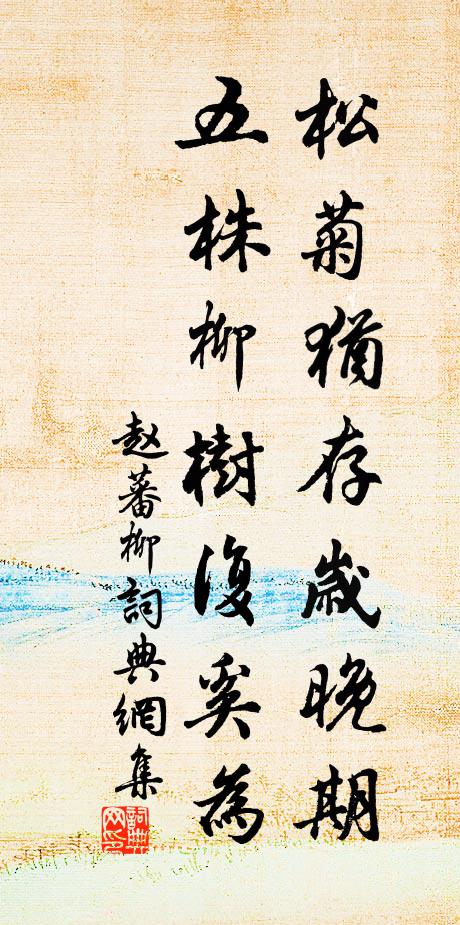 松菊猶存歲晚期
五株柳樹復奚為
赵蕃柳詞典網集
詞典网印